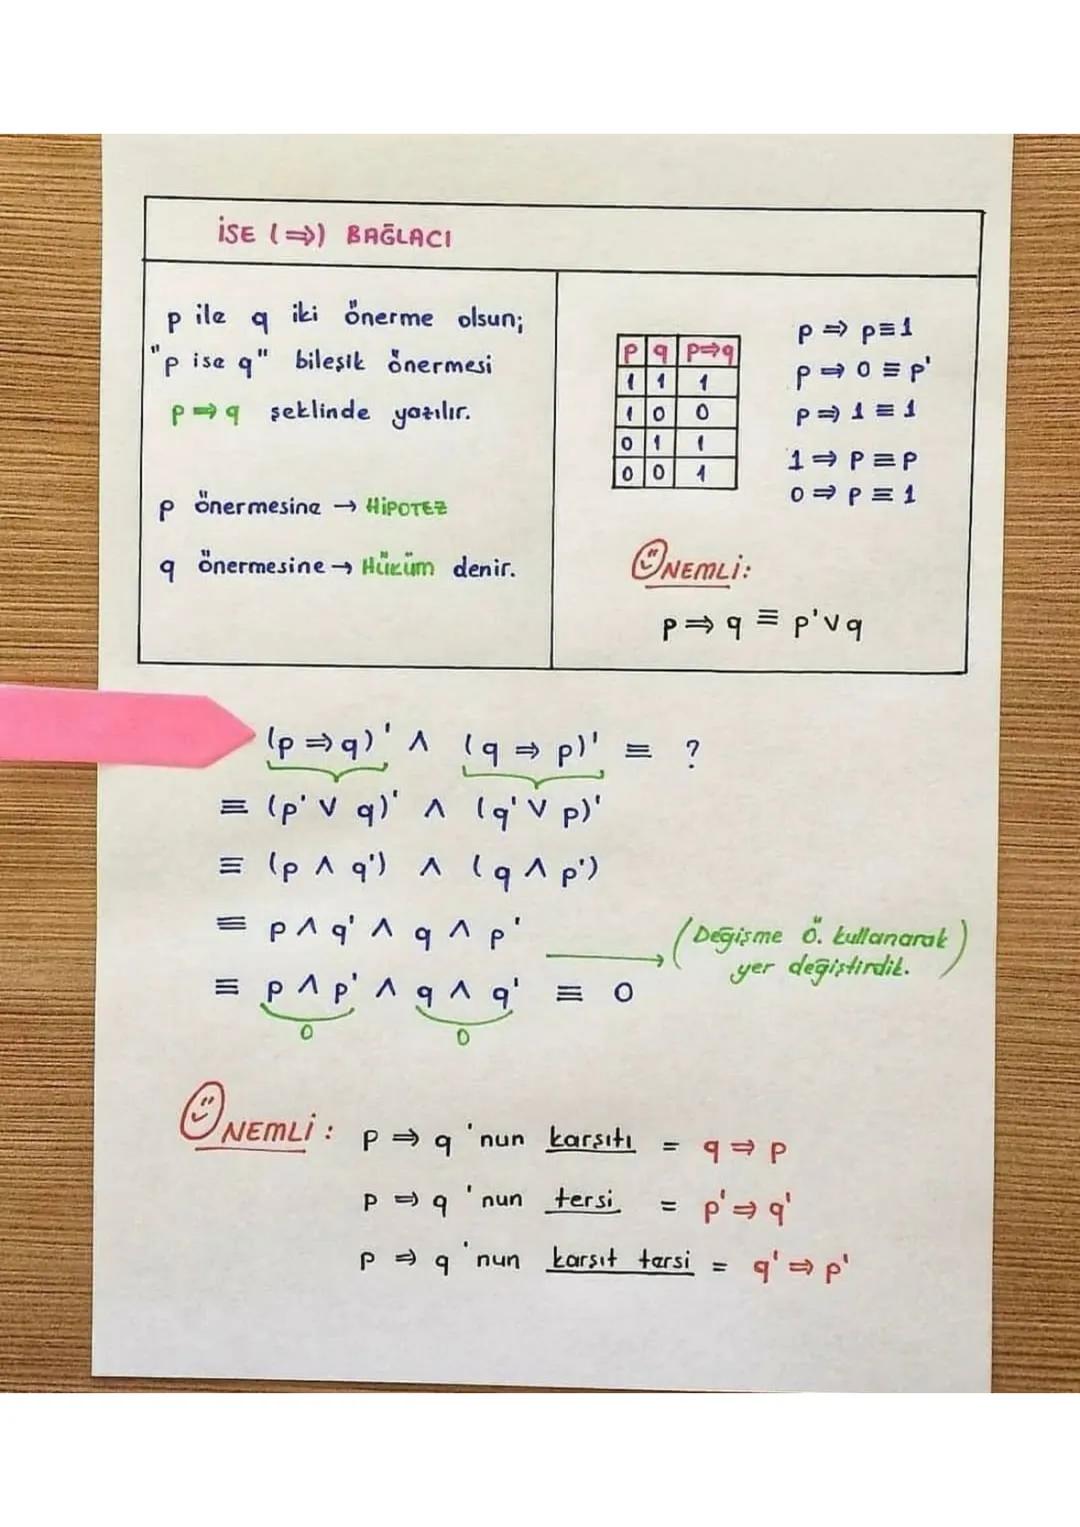 İSE (⇒) BAĞLACI
p ile q iki önerme olsun;
"p ise q" bileşik önermesi
p ⇒ q şeklinde yazılır.
p önermesine → HİPOTEZ
q önermesine → Hüküm denir.
p q p⇒q
1 1 1
1 0 0
0 1 1
0 0 1
p ⇒ p ≡ 1
p ⇒ 0 ≡ p'
p ⇒ 1 ≡ 1
1 ⇒ p ≡ p
0 ⇒ p ≡ 1
ÖNEMLİ:
p ⇒ q ≡ p' ∨ q
(p ⇒ q)' ∧ (q ⇒ p)' ≡ ?
≡ (p' ∨ q)' ∧ (q' ∨ p)'
≡ (p ∧ q') ∧ (q ∧ p')
≡ p ∧ q' ∧ q ∧ p'
(Değişme Ö. kullanarak
yer değiştirdik.)
≡ p ∧ p' ∧ q ∧ q' ≡ 0
0 0
ÖNEMLİ: p ⇒ q 'nun karşıtı = q ⇒ p
p ⇒ q 'nun tersi = p' ⇒ q'
p ⇒ q 'nun karşıt tersi = q' ⇒ p'